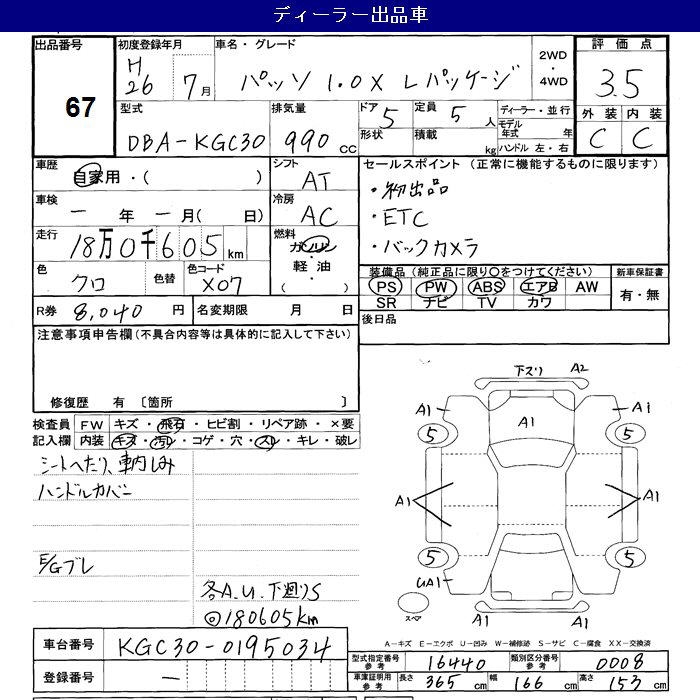 ディーラー出品車
出品番号 67
初度登録年月 H26 7月
車名・グレード パッソ 1.0X Lパッケージ
2WD・4WD
評価点 3.5
外装 内装
C C
型式 DBA-KGC30
排気量 990cc
ドア 5 形状
定員 5人 積載 kg
ディーラー・並行
モデル年式 年
ハンドル 左・右
車歴 自家用・( )
シフト AT
セールスポイント (正常に機能するものに限ります)
・初出品
・ETC
・バックカメラ
車検 一年 一月( 日)
冷房 AC
走行 18万0千605km
燃料 ガソリン・軽油・( )
色 クロ 色替 色コード X07
装備品 (純正品に限り○をつけてください)
PS PW ABS エアB AW
SR ナビ TV カワ
新車保証書 有・無
R券 8,040円 名変期限 月 日
後日品
注意事項申告欄 (不具合内容等は具体的に記入して下さい)
修復歴 有 〔箇所 〕
検査員記入欄
FW キズ・飛石・ヒビ割・リペア跡・×要
内装 キズ・汚レ・コゲ・穴・スレ・キレ・破レ
シートへたり、車内しみ
ハンドルカバー
E/Gブレ
各A.U.下廻りS
◎180605km
下スリ A2
A1 A1 A1
5 5
A1 A1
5 5
UA1
スペア
A-キズ E-エクボ U-凹み W-補修跡 S-サビ C-腐食 XX-交換済
車台番号 KGC30-0195034
登録番号 一
型式指定番号参考 16440 類別区分番号参考 0008
車庫証明用参考 長さ 365cm 幅 166cm 高さ 153cm